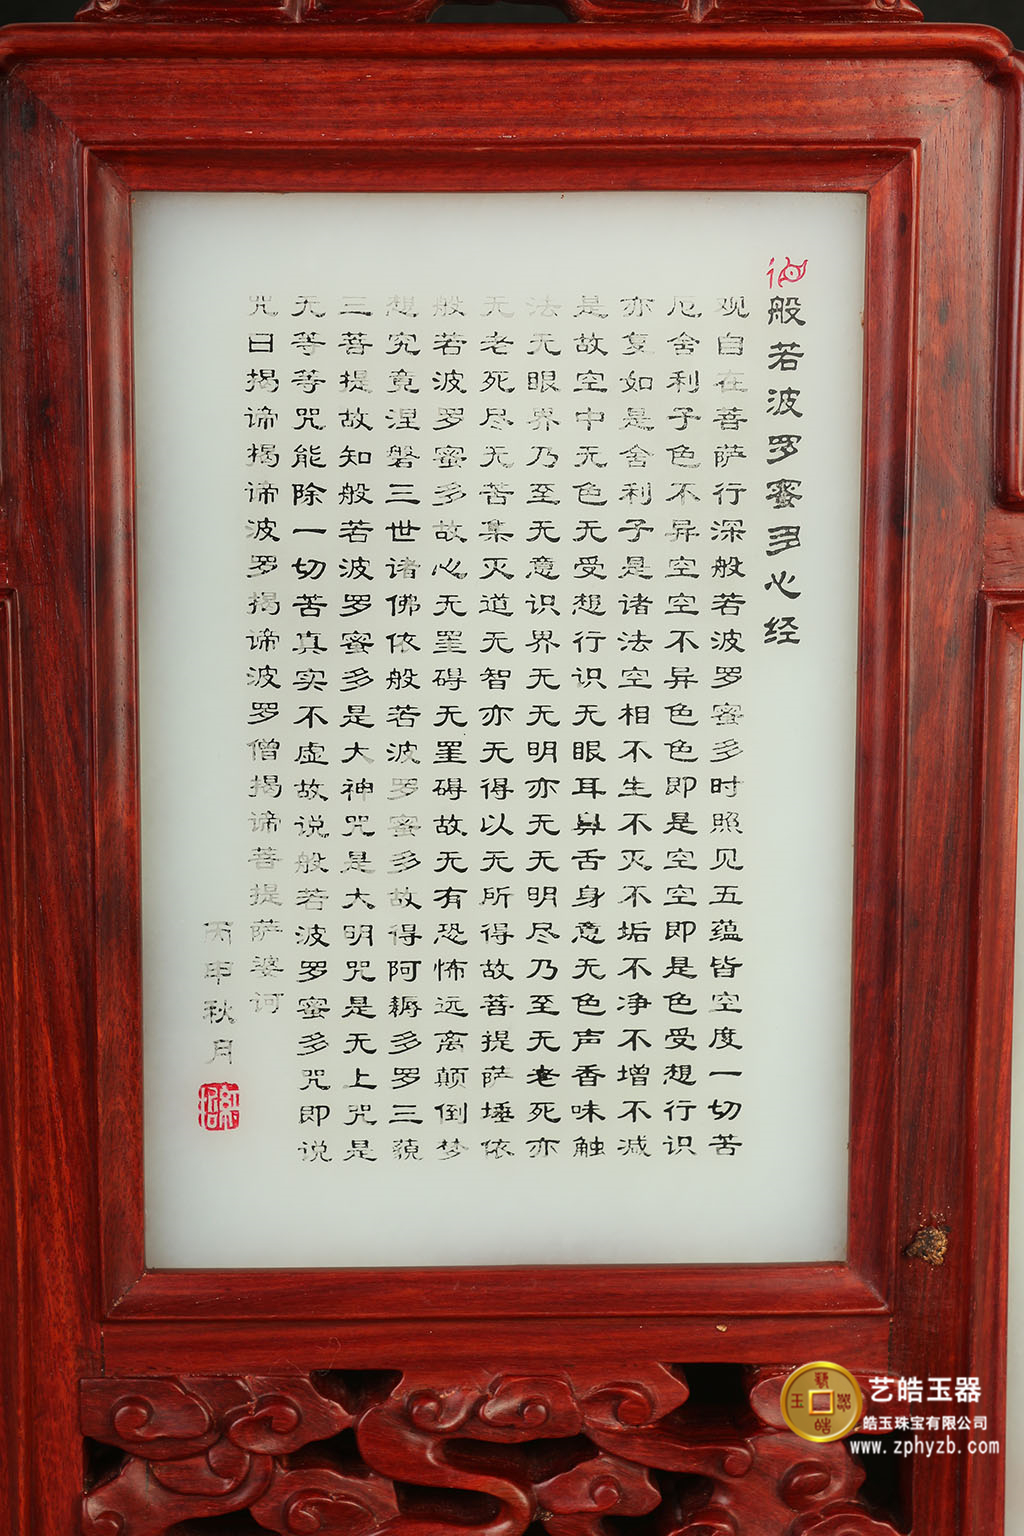 般若波罗蜜多心经
观自在菩萨行深般若波罗蜜多时照见五蕴皆空度一切苦
厄舍利子色不异空空不异色色即是空空即是色受想行识
亦复如是舍利子是诸法空相不生不灭不垢不净不增不减
是故空中无色无受想行识无眼耳鼻舌身意无色声香味触
法无眼界乃至无意识界无无明亦无无明尽乃至无老死亦
无老死尽无苦集灭道无智亦无得以无所得故菩提萨埵依
般若波罗蜜多故心无罣碍无罣碍故无有恐怖远离颠倒梦
想究竟涅磐三世诸佛依般若波罗蜜多故得阿耨多罗三藐
三菩提故知般若波罗蜜多是大神咒是大明咒是无上咒是
无等等咒能除一切苦真实不虚故说般若波罗蜜多咒即说
咒曰揭谛揭谛波罗揭谛波罗僧揭谛菩提萨婆诃
丙申秋月
艺皓玉器
皓玉珠宝有限公司
www.zphyzb.com